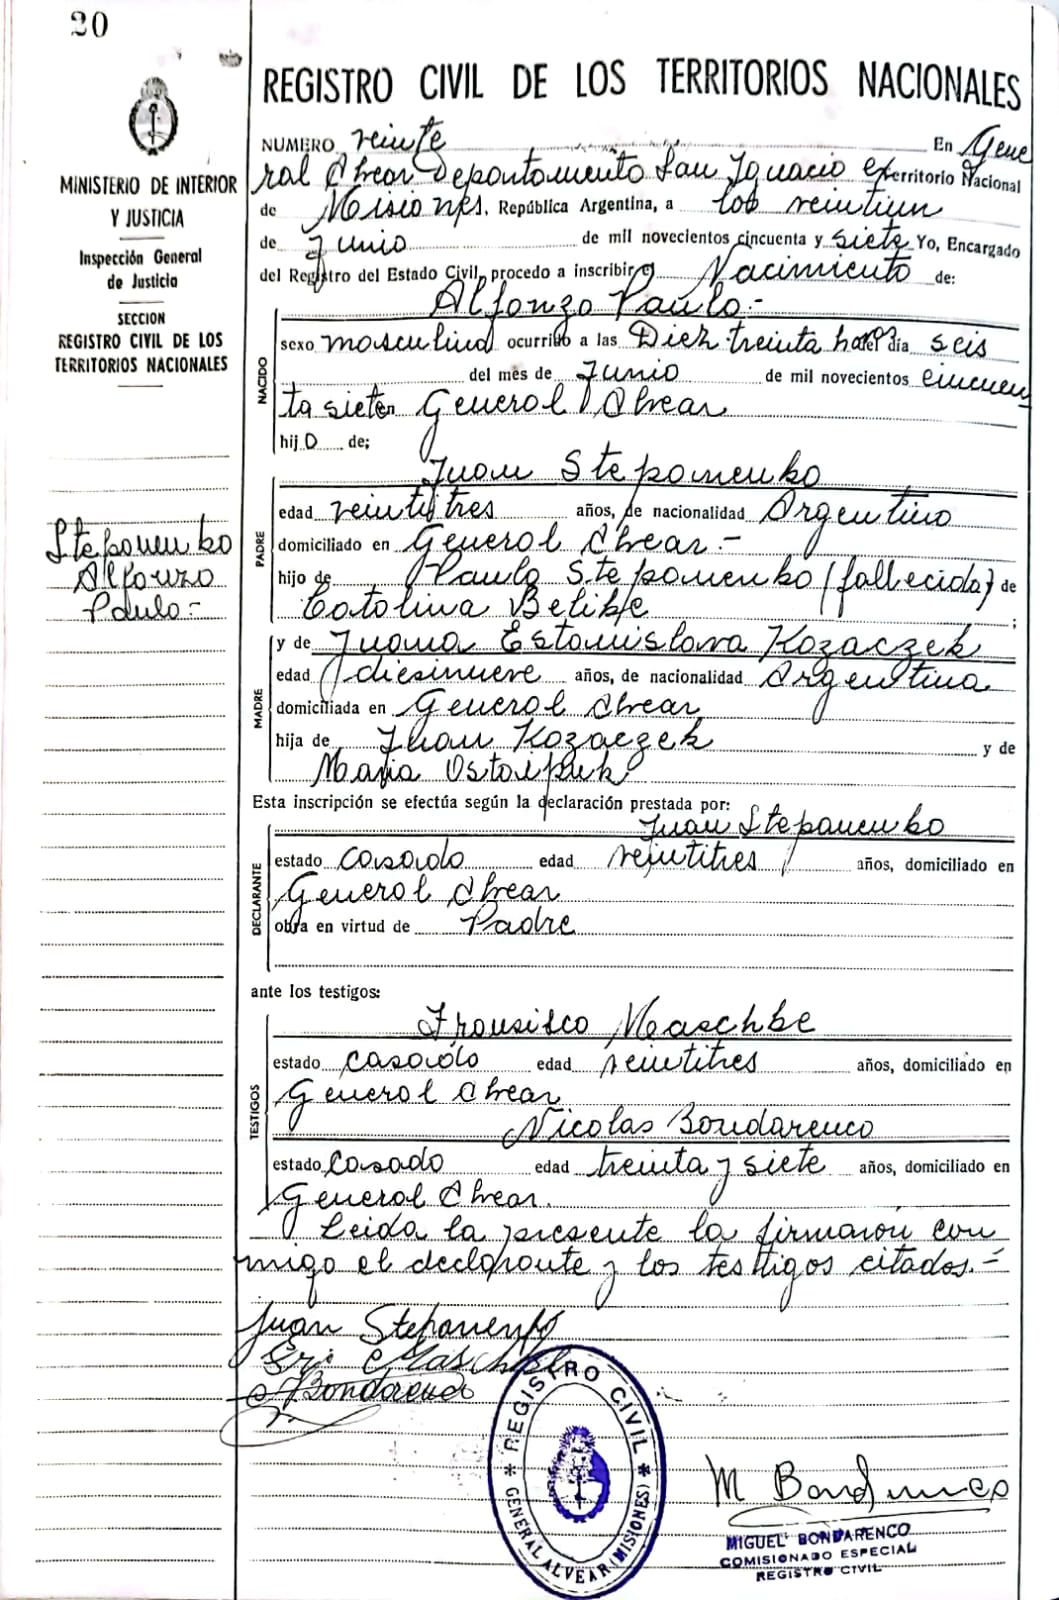 20
MINISTERIO DE INTERIOR
Y JUSTICIA
Inspección General
de Justicia
SECCION
REGISTRO CIVIL DE LOS
TERRITORIOS NACIONALES
Steponenko
Alfonzo
Paulo=
REGISTRO CIVIL DE LOS TERRITORIOS NACIONALES
NUMERO veinte En Gene
ral Alvear Departamento San Ignacio Territorio Nacional
de Misiones, República Argentina, a los veintiun
de Junio de mil novecientos cincuenta y siete Yo, Encargado
del Registro del Estado Civil, procedo a inscribir el Nacimiento de:
Alfonzo Paulo.-
NACIDO
sexo masculino ocurrido a las Diez treinta horas día seis
del mes de Junio de mil novecientos cincuen
ta siete en General Alvear
hijo de;
Juan Steponenko
PADRE
edad veintitres años, de nacionalidad Argentino
domiciliado en General Alvear.-
hijo de Paulo Steponenko (fallecido) de
Catalina ;
y de Juana Estanislava Kozaczek
MADRE
edad diesinueve años, de nacionalidad Argentina
domiciliada en General Alvear
hija de Juan Kozaczek y de
Maria
Esta inscripción se efectúa según la declaración prestada por:
Juan Stepanenko
DECLARANTE
estado casado edad veintitres años, domiciliado en
General Alvear
obra en virtud de Padre
ante los testigos:
Fransisco Maschke
TESTIGOS
estado casado edad veintitres años, domiciliado en
General Alvear
Nicolas Bondarenco
estado casado edad treinta y siete años, domiciliado en
General Alvear.
Leida la presente la firmaron con
migo el declarante y los testigos citados.=
Juan Stepanenko
Bondarenco
REGISTRO CIVIL
GENERAL ALVEAR (MISIONES)
M Bondarenco
MIGUEL BONDARENCO
COMISIONADO ESPECIAL
REGISTRO CIVIL